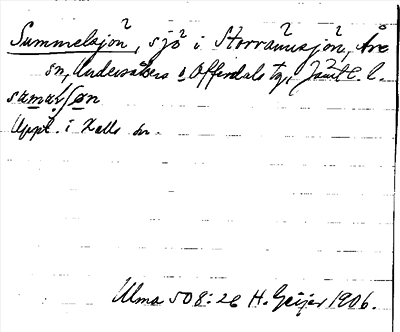 Summelsjön, sjö i Storrännsjön, Åre
sn, Undersåkers o Offerdals tg, Jämtl. l.
Uppt. i Kalls sn.
Ulma 508:26 H. Geijer 1906.